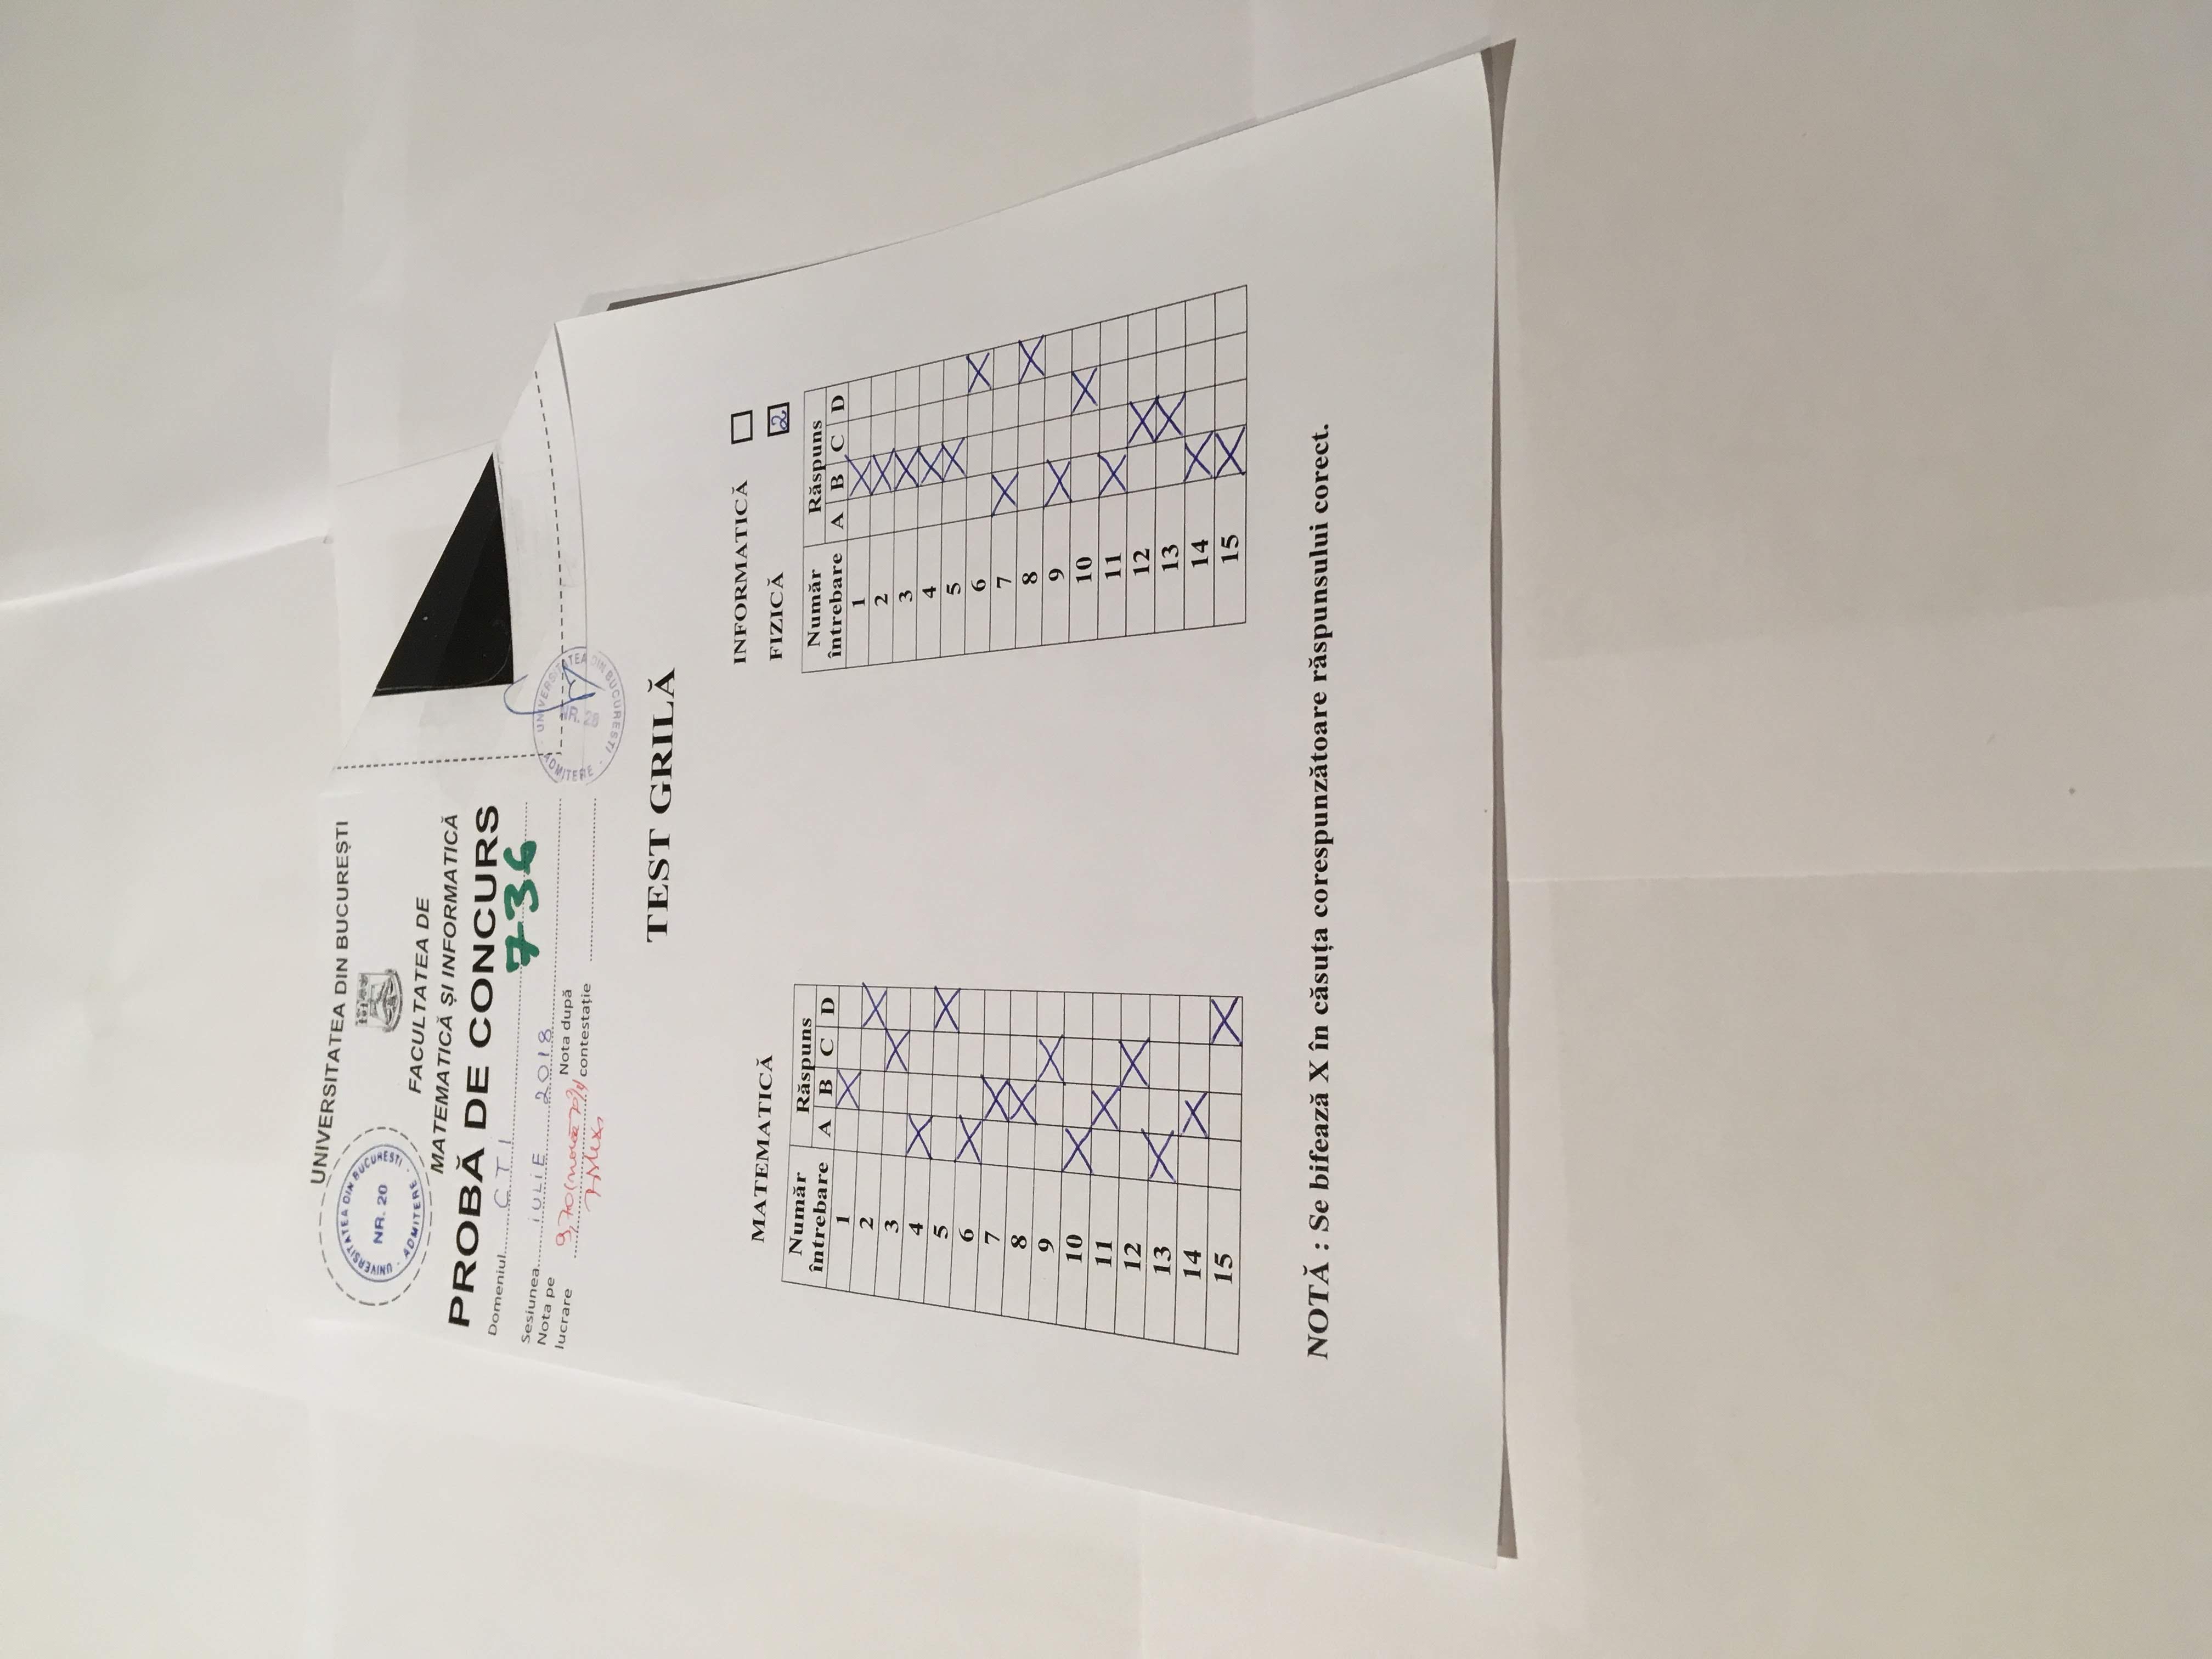 UNIVERSITATEA DIN BUCUREȘTI
UNIVERSITATEA DIN BUCUREȘTI
NR. 20
· ADMITERE ·
FACULTATEA DE
MATEMATICĂ ȘI INFORMATICĂ
PROBĂ DE CONCURS
Domeniul CTI
736
Sesiunea iULiE 2018
Nota pe lucrare 9,70 (nouă 70%)
Nota după contestație
UNIVERSITATEA DIN BUCURESTI
ADMITERE
TEST GRILĂ
MATEMATICĂ
Număr întrebare Răspuns
A B C D
1 X
2 X
3 X
4 X
5 X
6 X
7 X
8 X
9 X
10 X
11 X
12 X
13 X
14 X
15 X
INFORMATICĂ
FIZICĂ 2
Număr întrebare Răspuns
A B C D
1 X
2 X
3 X
4 X
5 X
6 X
7 X
8 X
9 X
10 X
11 X
12 X
13 X
14 X
15 X
NOTĂ : Se bifează X în căsuța corespunzătoare răspunsului corect.